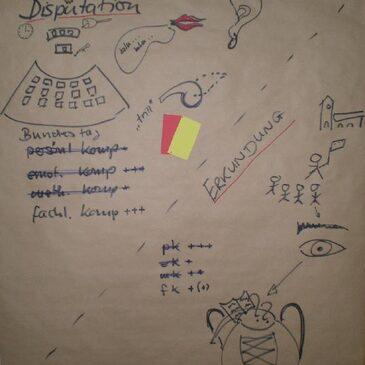 Disputation
bla..
bla..
"trrr"
Bundestag
persönl. komp +
emot. komp +++
meth. komp +
fachl. komp +++
ERKUNDUNG
pk +++
ek +
mk ++
fk +(+)